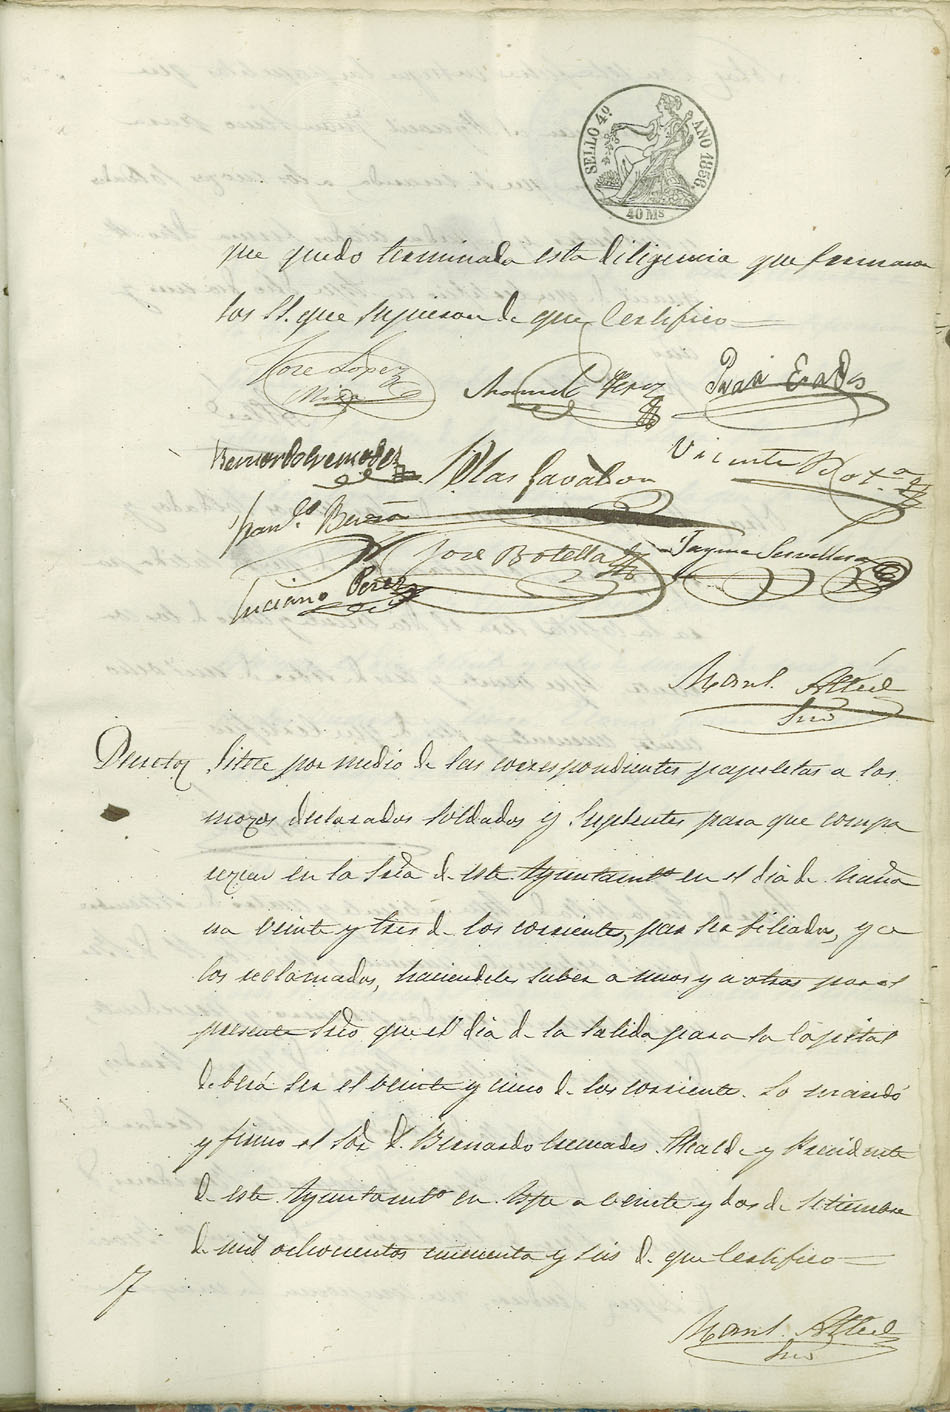 SELLO 4º AÑO 1856.
40 Ms
que quedo terminada esta diligencia que firmaron
los SS. que supieron de que Certifico
Jose Lopez
Mira
Manuel Perez
Juan Erades
Bernardo Cremades
Blas Favalon
Vicente
Franco. Berená
Jose Botella
Jayme Servillera
Luciano Perez
Manl. Alted
Srio
Decreto Citese por medio de las correspondientes papeletas a los
mozos declarados soldados y Suplentes para que compa
rezcan en la Sría de este Ayuntamto en el dia de maña
na veinte y tres de los corriente, para ser filiados, y a
los reclamados, haciendoles saber a unos y a otros por el
presente Srio que el dia de la salida para la Capital
deberá ser el veinte y cinco de los corriente. Lo mandó
y firmo el Sor. D. Bernardo Cremades Alcalde y Presidente
de este Ayuntamto en Aspe a veinte y dos de Setiembre
de mil ochocientos cincuenta y seis de que Certifico
Manl. Alted
Srio